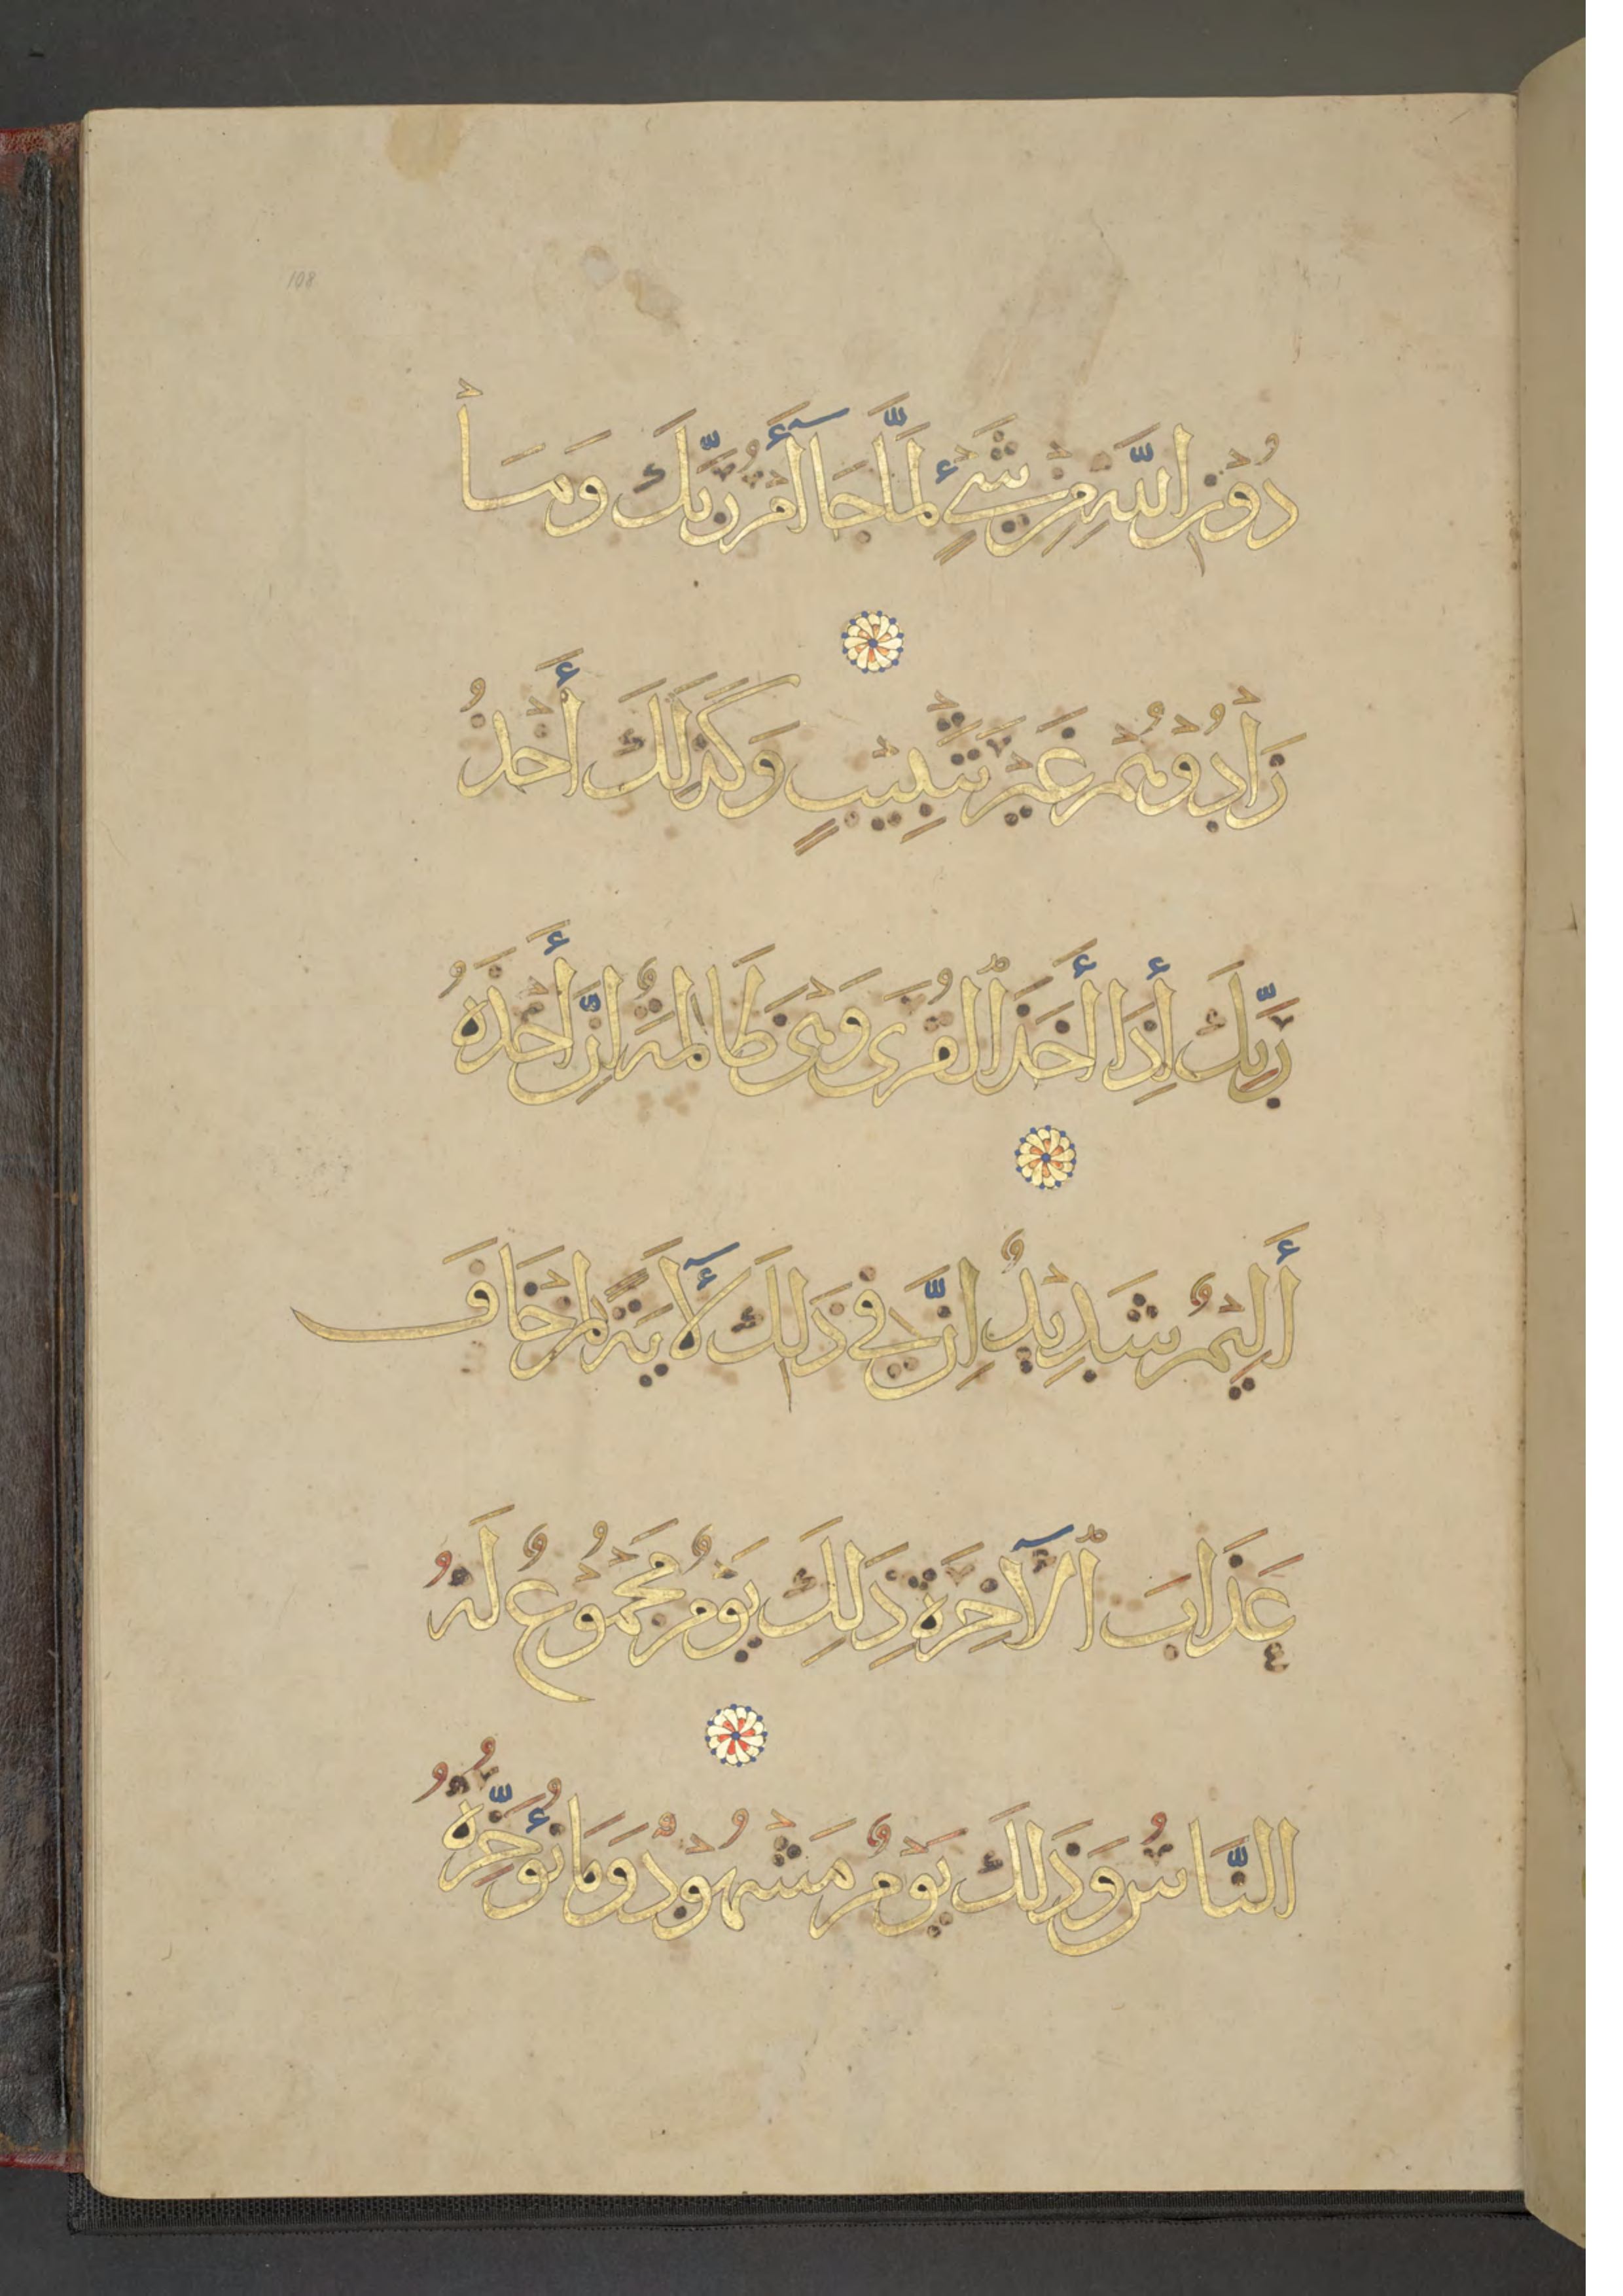 108
دُوْنِ اللّٰهِ مِنْ شَيْءٍ لَمَّا جَآءَ أَمْرُ رَبِّكَ وَمَا
زَادُوْهُمْ غَيْرَ تَتْبِيْبٍ وَكَذَلِكَ أَخْذُ
رَبِّكَ إِذَا أَخَذَ ٱلْقُرَى وَهْيَ ظَالِمَةٌ إِنَّ أَخْذَهُ
أَلِيْمٌ شَدِيْدٌ إِنَّ فِي ذَلِكَ لَأٓيَةً لِمَنْ خَافَ
عَذَابَ ٱلْآخِرَةِ ذَلِكَ يَوْمٌ مَجْمُوْعٌ لَهُ
النَّاسُ وَذَلِكَ يَوْمٌ مَشْهُوْدٌ وَمَا نُؤَخِّرُهُ